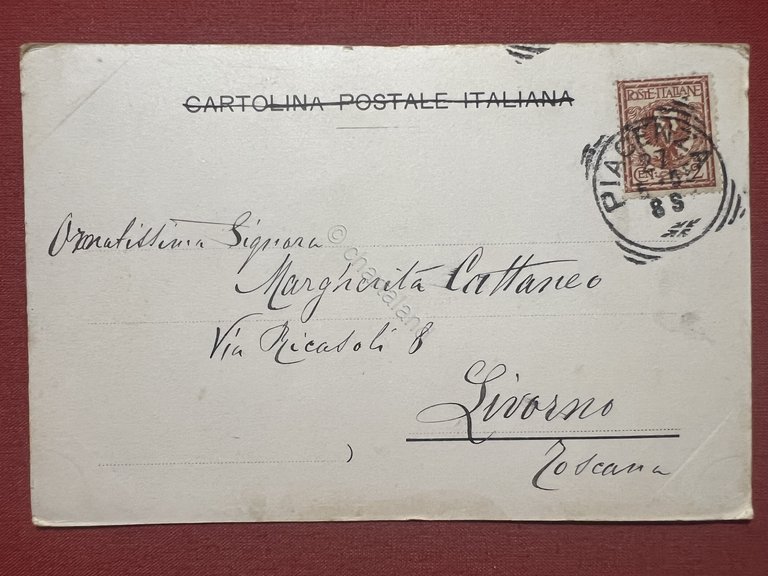 CARTOLINA POSTALE ITALIANA
POSTE ITALIANE
CENT. 2
PIACENZA
27
8 S
Ornatissima Signora
Margherita Cattaneo
Via Ricasoli 8
Livorno
Toscana